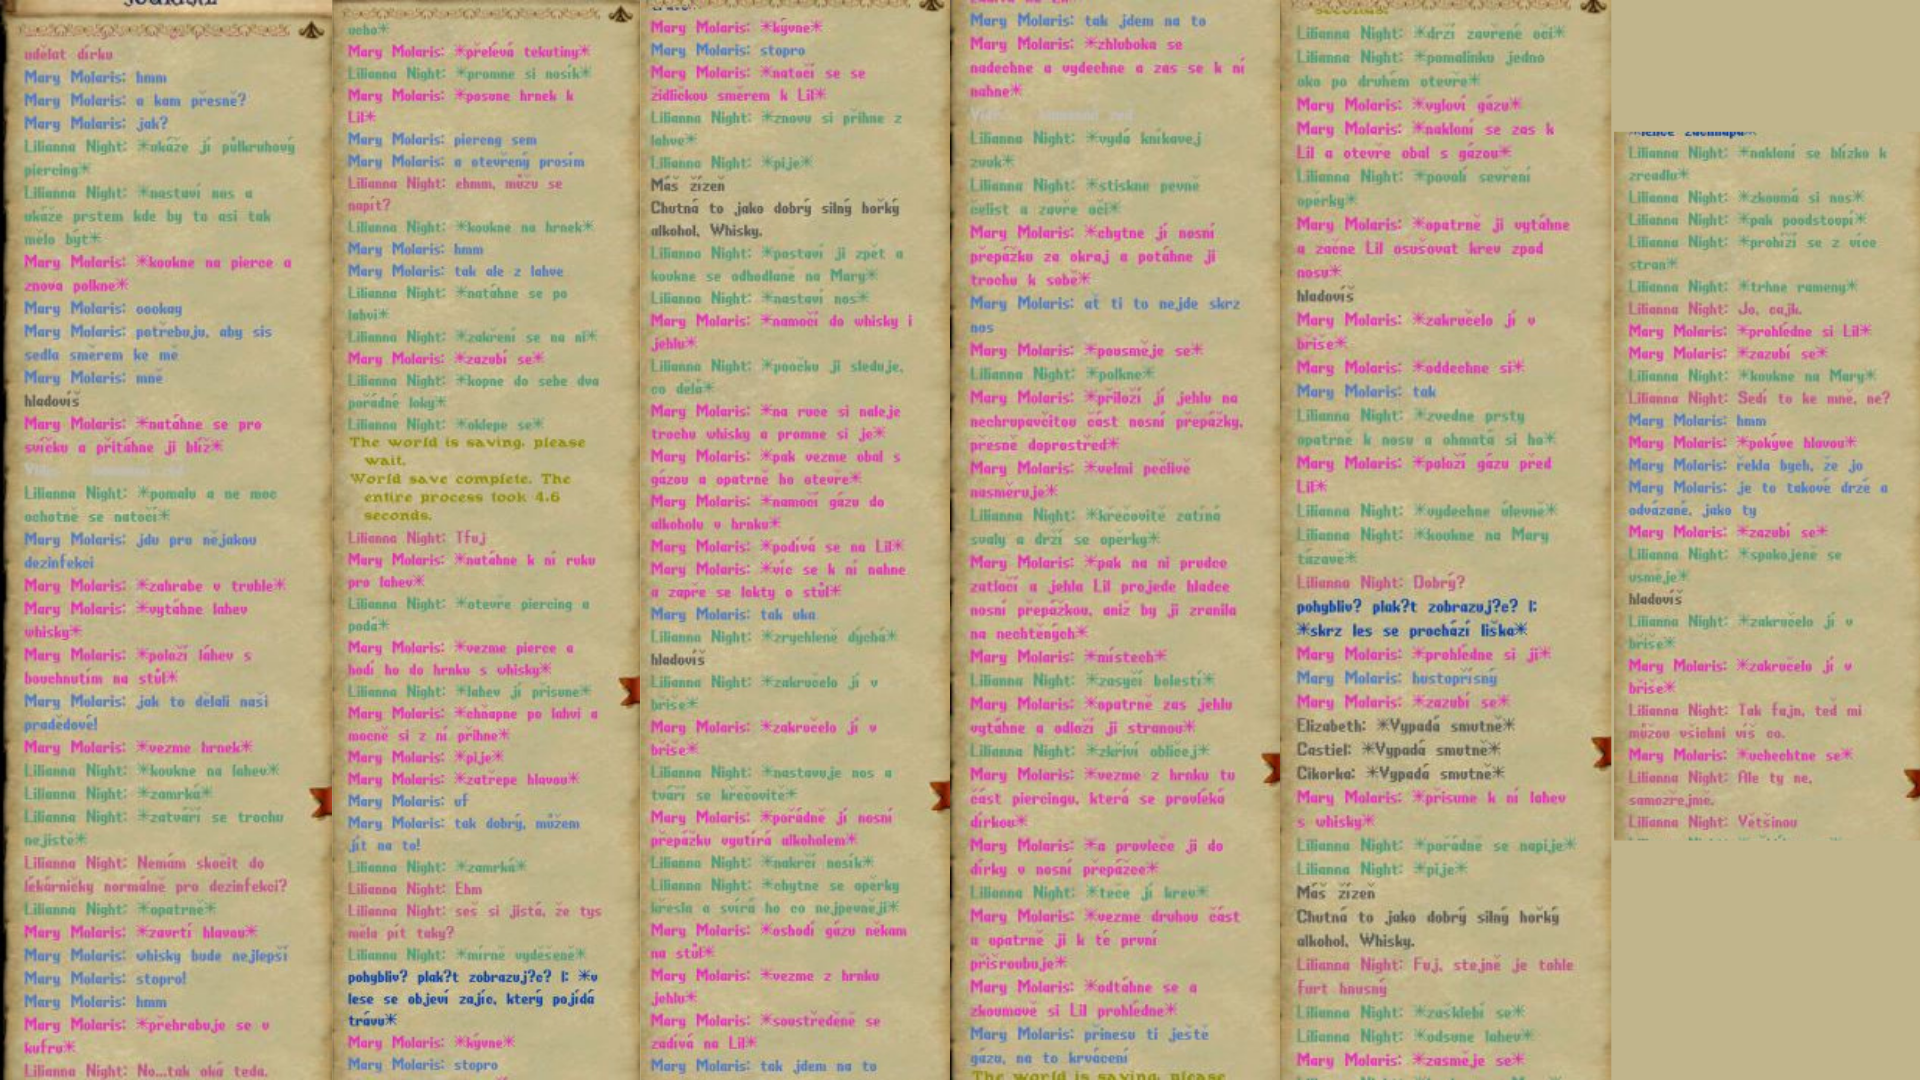 udělat dírku
Mary Molaris: hmm
Mary Molaris: a kam přesně?
Mary Molaris: jak?
Lilianna Night: *ukáže jí půlkruhový
piercing*
Lilianna Night: *nastaví nos a
ukáže prstem kde by to asi tak
mělo být*
Mary Molaris: *koukne na pierce a
znova polkne*
Mary Molaris: oookay
Mary Molaris: potřebuju, aby sis
sedla směrem ke mě
Mary Molaris: mně
hladovíš
Mary Molaris: *natáhne se pro
svíčku a přitáhne ji blíž*
Lilianna Night: *pomalu a ne moc
ochotně se natočí*
Mary Molaris: jdu pro nějakou
dezinfekci
Mary Molaris: *zahrabe v truhle*
Mary Molaris: *vytáhne lahev
whisky*
Mary Molaris: *položí láhev s
bouchnutím na stůl*
Mary Molaris: jak to dělali naši
pradědové!
Mary Molaris: *vezme hrnek*
Lilianna Night: *koukne na lahev*
Lilianna Night: *zamrká*
Lilianna Night: *zatváří se trochu
nejistě*
Lilianna Night: Nemám skočit do
lékárničky normálně pro dezinfekci?
Lilianna Night: *opatrně*
Mary Molaris: *zavrtí hlavou*
Mary Molaris: whisky bude nejlepší
Mary Molaris: stopro!
Mary Molaris: hmm
Mary Molaris: *přehrabuje se v
kufru*
Lilianna Night: No...tak oká teda.
ucho*
Mary Molaris: *přelévá tekutiny*
Lilianna Night: *promne si nosík*
Mary Molaris: *posune hrnek k
Lil*
Mary Molaris: piereng sem
Mary Molaris: a otevřený prosím
Lilianna Night: ehmm, můžu se
napít?
Lilianna Night: *koukne na hrnek*
Mary Molaris: hmm
Mary Molaris: tak ale z lahve
Lilianna Night: *natáhne se po
lahvi*
Lilianna Night: *zakření se na ní*
Mary Molaris: *zazubí se*
Lilianna Night: *kopne do sebe dva
pořádné loky*
Lilianna Night: *oklepe se*
The world is saving, please
wait.
World save complete. The
entire process took 4.6
seconds.
Lilianna Night: Tfuj
Mary Molaris: *natáhne k ní ruku
pro lahev*
Lilianna Night: *otevře piercing a
podá*
Mary Molaris: *vezme pierce a
hodí ho do hrnku s whisky*
Lilianna Night: *lahev jí prisune*
Mary Molaris: *chňapne po lahvi a
mocně si z ní přihne*
Mary Molaris: *pije*
Mary Molaris: *zatřepe hlavou*
Mary Molaris: uf
Mary Molaris: tak dobrý, můžem
jít na to!
Lilianna Night: *zamrká*
Lilianna Night: Ehm
Lilianna Night: seš si jistá, že tys
měla pít taky?
Lilianna Night: *mírně vyděšeně*
pohybliv? plak?t zobrazuj?c? I: *v
lese se objeví zajíc, který pojídá
trávu*
Mary Molaris: *kývne*
Mary Molaris: stopro
Mary Molaris: *kývne*
Mary Molaris: stopro
Mary Molaris: *natočí se se
židličkou směrem k Lil*
Lilianna Night: *znovu si přihne z
lahve*
Lilianna Night: *pije*
Máš žízeň
Chutná to jako dobrý silný hořký
alkohol, Whisky.
Lilianna Night: *postaví ji zpět a
koukne se odhodlaně na Mary*
Lilianna Night: *nastaví nos*
Mary Molaris: *namočí do whisky i
jehlu*
Lilianna Night: *poočku ji sleduje,
co dělá*
Mary Molaris: *na ruce si naleje
trochu whisky a promne si je*
Mary Molaris: *pak vezme obal s
gázou a opatrně ho otevře*
Mary Molaris: *namočí gázu do
alkoholu v hrnku*
Mary Molaris: *podívá se na Lil*
Mary Molaris: *víc se k ní nahne
a zapře se lokty o stůl*
Mary Molaris: tak uka
Lilianna Night: *zrychleně dýchá*
hladovíš
Lilianna Night: *zakručelo jí v
břiše*
Mary Molaris: *zakručelo jí v
břiše*
Lilianna Night: *nastavuje nos a
tváří se křečovitě*
Mary Molaris: *pořádně jí nosní
přepážku vyutírá alkoholem*
Lilianna Night: *nakrčí nosík*
Lilianna Night: *chytne se opěrky
křesla a svírá ho co nejpevněji*
Mary Molaris: *oshodí gázu někam
na stůl*
Mary Molaris: *vezme z hrnku
jehlu*
Mary Molaris: *soustředěně se
zadívá na Lil*
Mary Molaris: tak jdem na to
Mary Molaris: tak jdem na to
Mary Molaris: *zhluboka se
nadechne a vydechne a zas se k ní
nahne*
Lilianna Night: *vydá kníkavej
zvuk*
Lilianna Night: *stiskne pevně
čelist a zavře oči*
Mary Molaris: *chytne jí nosní
přepážku za okraj a potáhne ji
trochu k sobě*
Mary Molaris: ať ti to nejde skrz
nos
Mary Molaris: *pousměje se*
Lilianna Night: *polkne*
Mary Molaris: *přiloží jí jehlu na
nechrupavčitou část nosní přepážky,
přesně doprostřed*
Mary Molaris: *velmi pečlivě
nasměruje*
Lilianna Night: *křečovitě zatíná
svaly a drží se opěrky*
Mary Molaris: *pak na ni prudce
zatlačí a jehla Lil projede hladce
nosní přepážkou, aniž by ji zranila
na nechtěných*
Mary Molaris: *místech*
Lilianna Night: *zasyčí bolestí*
Mary Molaris: *opatrně zas jehlu
vytáhne a odloží ji stranou*
Lilianna Night: *zkřiví obličej*
Mary Molaris: *vezme z hrnku tu
část piercingu, která se provléká
dírkou*
Mary Molaris: *a provleče ji do
dírky v nosní přepážce*
Lilianna Night: *teče jí krev*
Mary Molaris: *vezme druhou část
a opatrně ji k té první
přišroubuje*
Mary Molaris: *odtáhne se a
zkoumavě si Lil prohlédne*
Mary Molaris: přinesu ti ještě
gázu, na to krvácení
The world is saving, please
Lilianna Night: *drží zavřené oči*
Lilianna Night: *pomalinku jedno
oko po druhém otevře*
Mary Molaris: *vyloví gázu*
Mary Molaris: *nakloní se zas k
Lil a otevře obal s gázou*
Lilianna Night: *povolí sevření
opěrky*
Mary Molaris: *opatrně ji vytáhne
a začne Lil osušovat krev zpod
nosu*
hladovíš
Mary Molaris: *zakručelo jí v
břiše*
Mary Molaris: *oddechne si*
Mary Molaris: tak
Lilianna Night: *zvedne prsty
opatrně k nosu a ohmatá si ho*
Mary Molaris: *položí gázu před
Lil*
Lilianna Night: *vydechne úlevně*
Lilianna Night: *koukne na Mary
tázavě*
Lilianna Night: Dobrý?
pohybliv? plak?t zobrazuj?c? I:
*skrz les se prochází liška*
Mary Molaris: *prohlédne si ji*
Mary Molaris: hustopřísný
Mary Molaris: *zazubí se*
Elizabeth: *Vypadá smutně*
Castiel: *Vypadá smutně*
Cikorka: *Vypadá smutně*
Mary Molaris: *přisune k ní lahev
s whisky*
Lilianna Night: *pořádně se napije*
Lilianna Night: *pije*
Máš žízeň
Chutná to jako dobrý silný hořký
alkohol, Whisky.
Lilianna Night: Fuj, stejně je tohle
furt hnusný
Lilianna Night: *zašklebí se*
Lilianna Night: *odsune lahev*
Mary Molaris: *zasměje se*
Lilianna Night: *nakloní se blízko k
zrcadlu*
Lilianna Night: *zkoumá si nos*
Lilianna Night: *pak poodstoupí*
Lilianna Night: *probíží se z více
stran*
Lilianna Night: *trhne rameny*
Lilianna Night: Jo, cajk.
Mary Molaris: *prohlédne si Lil*
Mary Molaris: *zazubí se*
Lilianna Night: *koukne na Mary*
Lilianna Night: Sedí to ke mně, ne?
Mary Molaris: hmm
Mary Molaris: *pokýve hlavou*
Mary Molaris: řekla bych, že jo
Mary Molaris: je to takové drzé a
odvázané, jako ty
Mary Molaris: *zazubí se*
Lilianna Night: *spokojeně se
usměje*
hladovíš
Lilianna Night: *zakručelo jí v
břiše*
Mary Molaris: *zakručelo jí v
břiše*
Lilianna Night: Tak fajn, teď mi
můžou všichni víš co.
Mary Molaris: *uchechtne se*
Lilianna Night: Ale ty ne,
samozřejmě.
Lilianna Night: Většinou